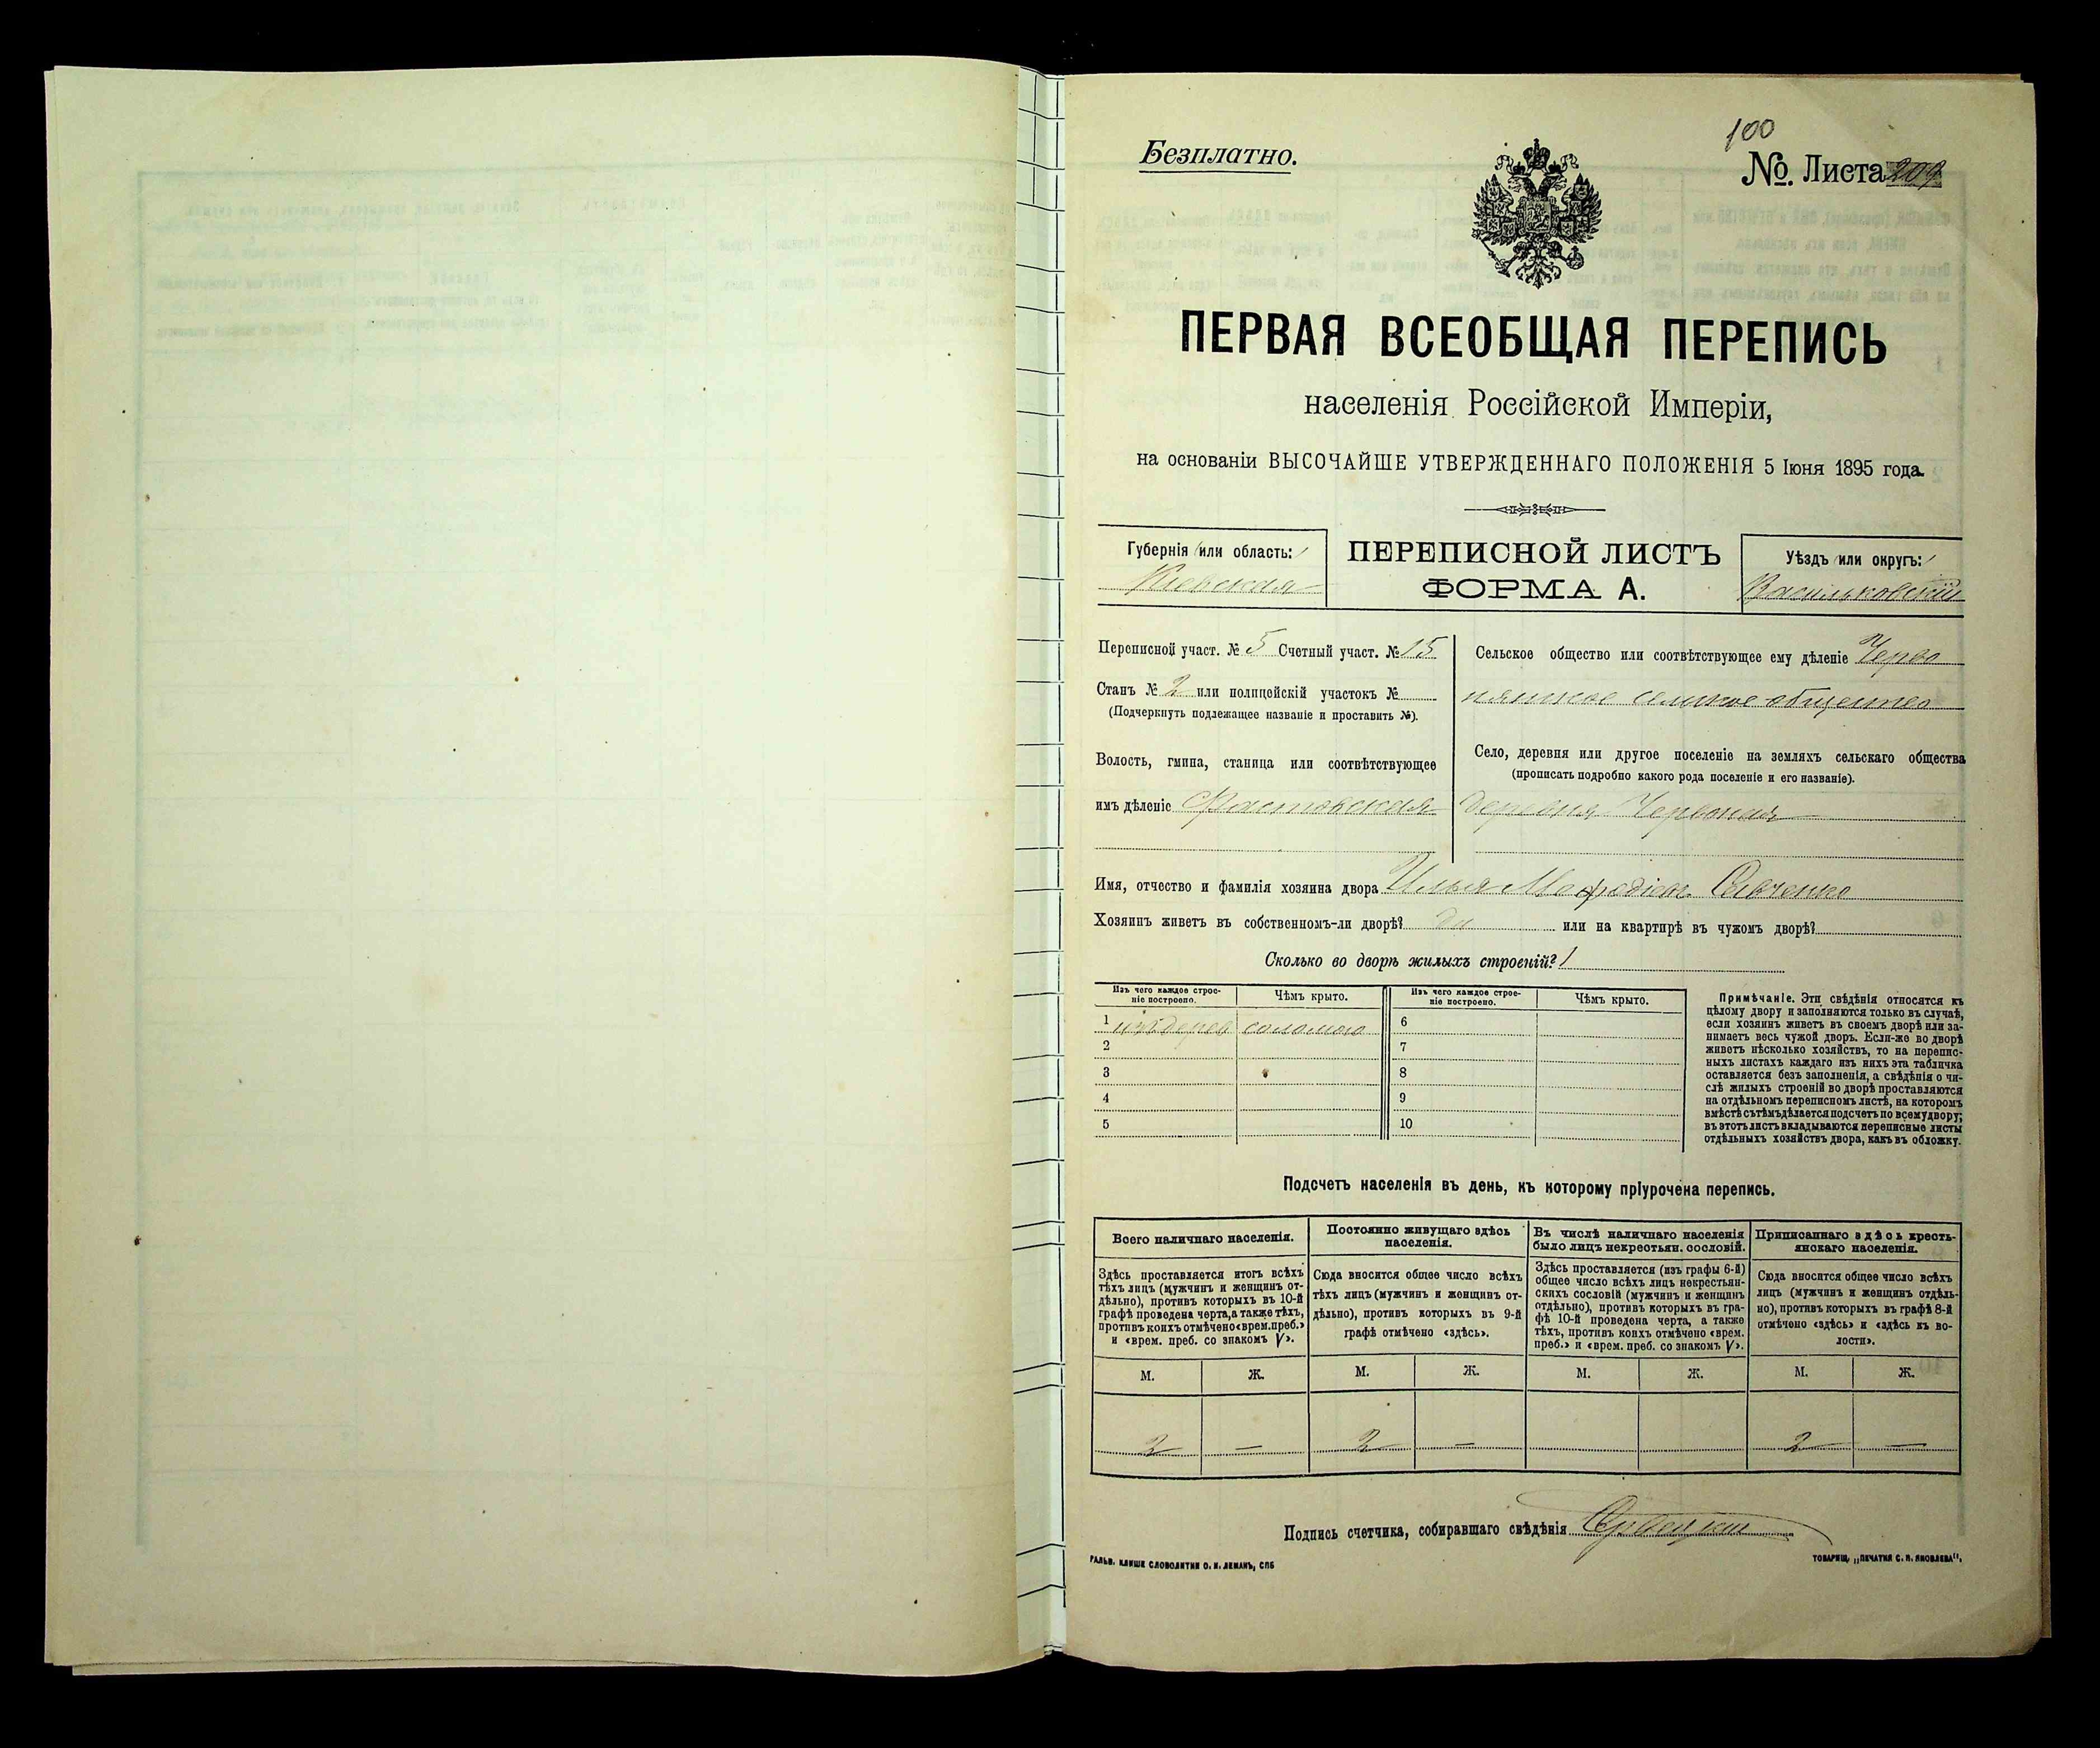 100
Безплатно.
№ Листа 209
ПЕРВАЯ ВСЕОБЩАЯ ПЕРЕПИСЬ
населенія Россійской Имперіи,
на основаніи ВЫСОЧАЙШЕ УТВЕРЖДЕННАГО ПОЛОЖЕНІЯ 5 Іюня 1895 года.
Губернія (или область:)
Кіевская
ПЕРЕПИСНОЙ ЛИСТЪ
ФОРМА А.
Уѣздъ (или округъ:)
Васильковскій
Переписной участ. № 5 Счетный участ. № 15
Станъ № 2 или полицейскій участокъ №
(Подчеркнуть подлежащее названіе и проставить №).
Волость, гмина, станица или соотвѣтствующее
имъ дѣленіе Фастовская
Сельское общество или соотвѣтствующее ему дѣленіе Черво
нянское сельское общество
Село, деревня или другое поселеніе на земляхъ сельскаго общества
(прописать подробно какого рода поселеніе и его названіе).
деревня Червоная
Имя, отчество и фамилія хозяина двора Илья Мефодіев. Савченко
Хозяинъ живетъ въ собственномъ-ли дворѣ? да или на квартирѣ въ чужомъ дворѣ?
Сколько во дворѣ жилыхъ строеній? 1
Изъ чего каждое строе-
ніе построено.
Чѣмъ крыто.
Изъ чего каждое строе-
ніе построено.
Чѣмъ крыто.
1 изъ дерев соломою 6
2 7
3 8
4 9
5 10
Примѣчаніе. Эти свѣдѣнія относятся къ
цѣлому двору и заполняются только въ случаѣ,
если хозяинъ живетъ въ своемъ дворѣ или за-
нимаетъ весь чужой дворъ. Если-же во дворѣ
живетъ нѣсколько хозяйствъ, то на перепис-
ныхъ листахъ каждаго изъ нихъ эта табличка
оставляется безъ заполненія, а свѣдѣнія о чи-
слѣ жилыхъ строеній во дворѣ проставляются
на отдѣльномъ переписномъ листѣ, на которомъ
вмѣстѣ съ тѣмъ дѣлается подсчетъ по всему двору;
въ этотъ листъ вкладываются переписные листы
отдѣльныхъ хозяйствъ двора, какъ въ обложку.
Подсчетъ населенія въ день, къ которому пріурочена перепись.
Всего наличнаго населенія.
Здѣсь проставляется итогъ всѣхъ
тѣхъ лицъ (мужчинъ и женщинъ от-
дѣльно), противъ которыхъ въ 10-й
графѣ проведена черта, а также тѣхъ,
противъ коихъ отмѣчено «врем. преб.»
и «врем. преб. со знакомъ V».
М. Ж.
2 —
Постоянно живущаго здѣсь
населенія.
Сюда вносится общее число всѣхъ
тѣхъ лицъ (мужчинъ и женщинъ от-
дѣльно), противъ которыхъ въ 9-й
графѣ отмѣчено «здѣсь».
М. Ж.
2 —
Въ числѣ наличнаго населенія
было лицъ некрестьян. сословій.
Здѣсь проставляется (изъ графы 6-й)
общее число всѣхъ лицъ некрестьян-
скихъ сословій (мужчинъ и женщинъ
отдѣльно), противъ которыхъ въ гра-
фѣ 10-й проведена черта, а также
тѣхъ, противъ коихъ отмѣчено «врем.
преб.» и «врем. преб. со знакомъ V».
М. Ж.
Приписаннаго здѣсь кресть-
янскаго населенія.
Сюда вносится общее число всѣхъ
лицъ (мужчинъ и женщинъ отдѣль-
но), противъ которыхъ въ графѣ 8-й
отмѣчено «здѣсь» и «здѣсь къ во-
лости».
М. Ж.
2 —
Подпись счетчика, собиравшаго свѣдѣнія
ГАЛЬВ. КЛИШЕ СЛОВОЛИТНИ О. И. ЛЕМАНЪ, СПБ
ТОВАРИЩ. „ПЕЧАТНЯ С. П. ЯКОВЛЕВА“.